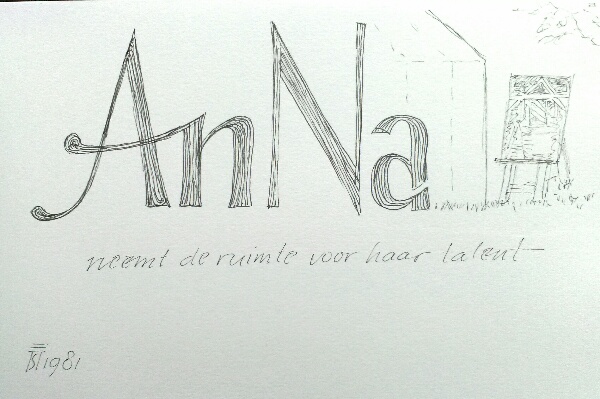 AnNa
neemt de ruimte voor haar talent
1981